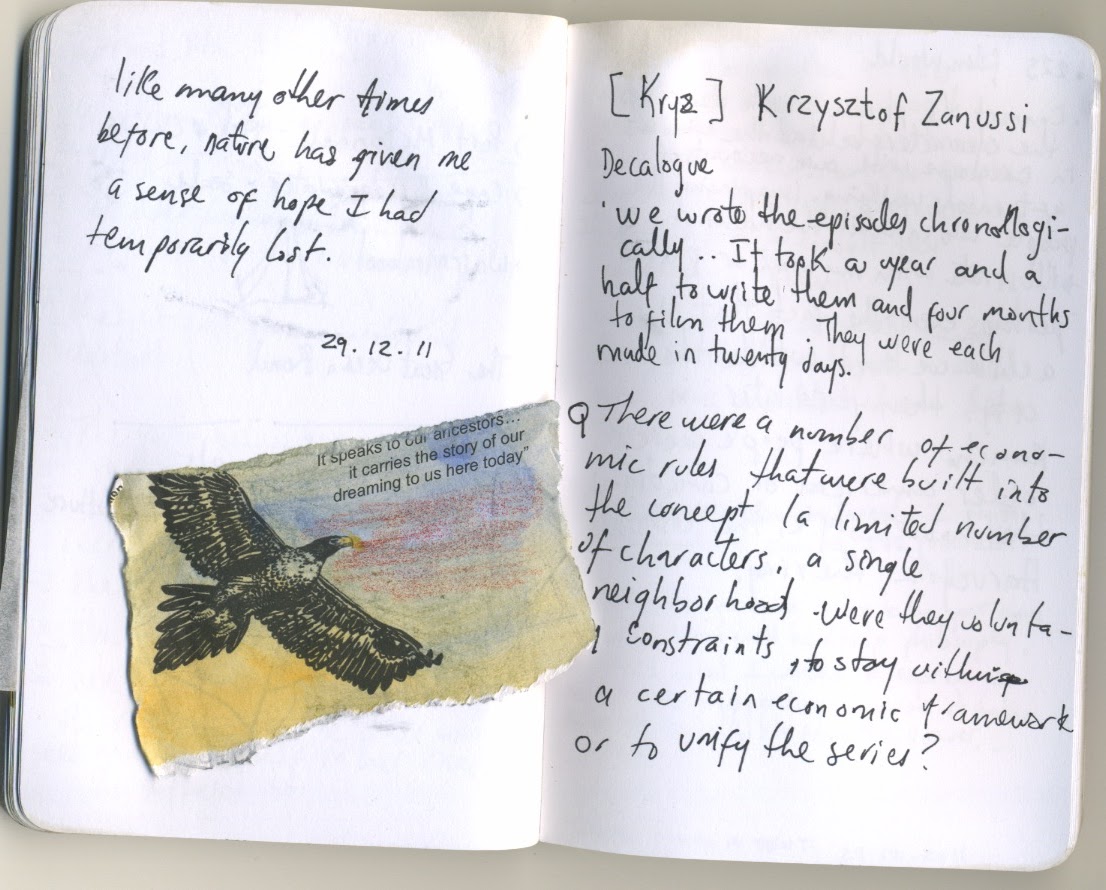 like many other times
before, nature has given me
a sense of hope I had
temporarily lost.
29.12.11
It speaks to our ancestors...
it carries the story of our
dreaming to us here today"
[Kryz] Krzysztof Zanussi
Decalogue
'we wrote the episodes chronollogi-
cally.. It took a year and a
half to write them and four months
to film them. They were each
made in twenty days.
Q There were a number of econo-
mic rules that were built into
the concept (a limited number
of characters, a single
neighborhood - were they volunta-
y constraints, to stay within
a certain economic framework
or to unify the series?